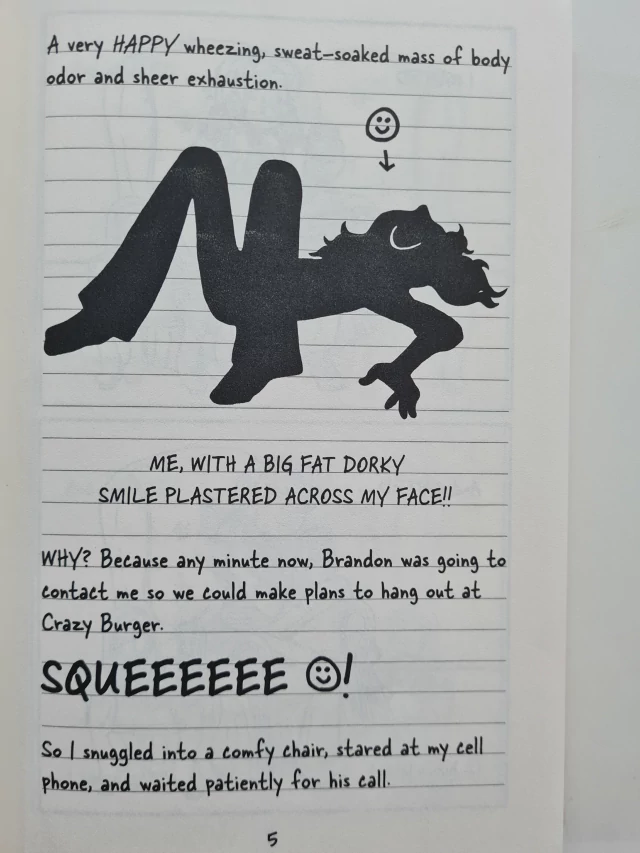 A very HAPPY wheezing, sweat-soaked mass of body
odor and sheer exhaustion.
ME, WITH A BIG FAT DORKY
SMILE PLASTERED ACROSS MY FACE!!
WHY? Because any minute now, Brandon was going to
contact me so we could make plans to hang out at
Crazy Burger.
SQUEEEEEE ☺!
So I snuggled into a comfy chair, stared at my cell
phone, and waited patiently for his call.
5